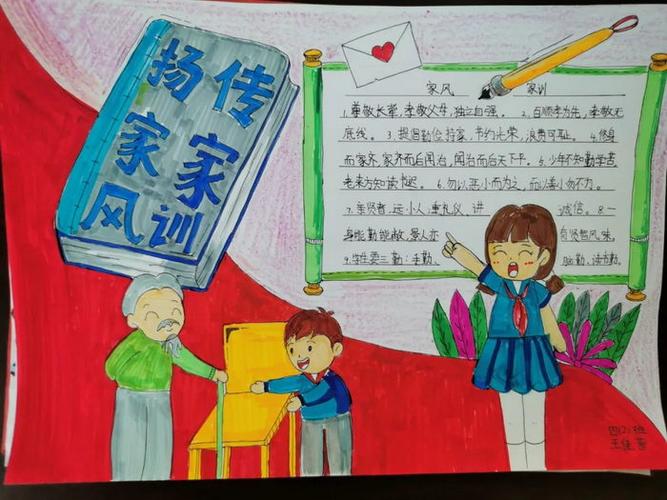 传家训
扬家风
家风 家训
1.尊敬长辈,孝敬父母,独立自强。2.百顺孝为先,孝敬无
底线。3.提倡勤俭持家,节约光荣,浪费可耻。4.修身
而家齐,家齐而后国治,国治而后天下平。5.少年不知勤学苦
老来方知读书迟。6.勿以恶小而为之,而以善小勿不为。
7.亲贤者,远小人,重礼仪,讲 诚信。8.一
身能勤能敬,愚人亦 有贤智风味。
9.学生要三勤:手勤、 脑勤、读书勤。
四(2)班
王佳